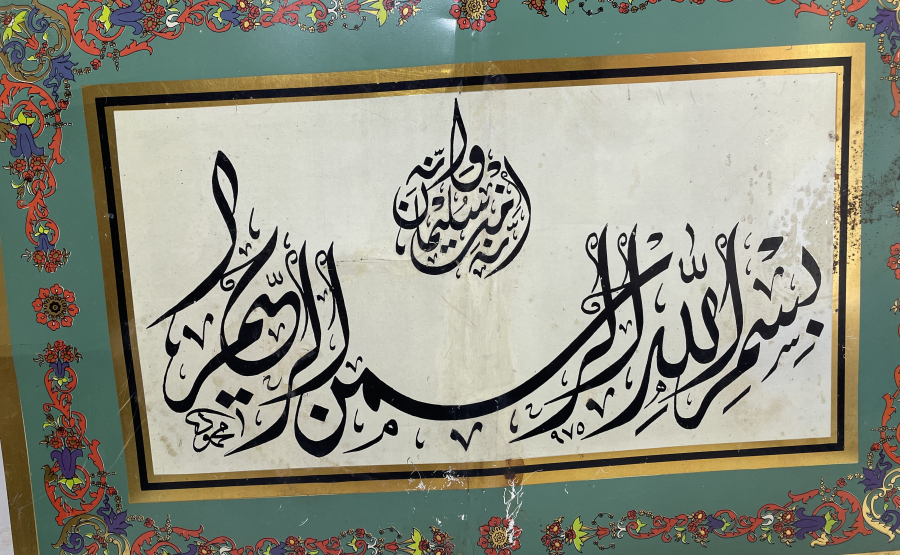 إنه من سليمان وإنه
بسم الله الرحمن الرحيم
٩٧٥
محمود